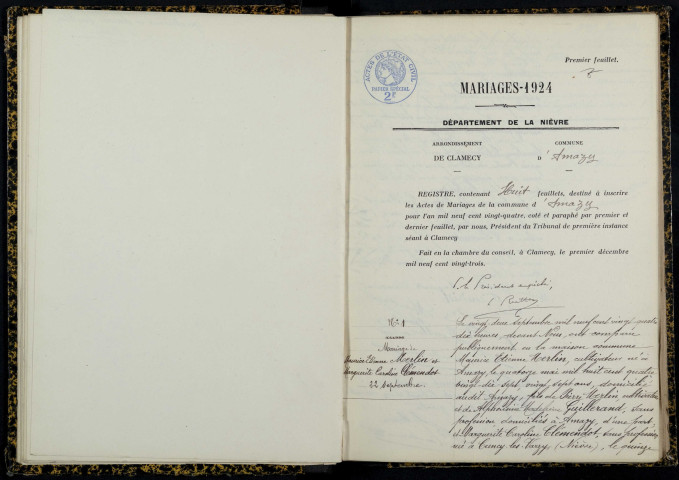 Premier feuillet.
ACTES DE L'ETAT CIVIL
PAPIER SPECIAL
2F
MARIAGES-1924
DÉPARTEMENT DE LA NIÈVRE
ARRONDISSEMENT
DE CLAMECY
COMMUNE
D'Amazy
REGISTRE, contenant Huit feuillets, destiné à inscrire
les Actes de Mariages de la commune d'Amazy
pour l'an mil neuf cent vingt-quatre, coté et paraphé par premier et
dernier feuillet, par nous, Président du Tribunal de première instance
séant à Clamecy
Fait en la chambre du conseil, à Clamecy, le premier décembre
mil neuf cent vingt-trois.
P. le Président empêché,
No 1
Mariage de
Maurice Etienne Merlin et
Marguerite Caroline Clémendot
22 Septembre.
Le vingt deux Septembre mil neuf cent vingt quatre
dix heures, devant Nous, ont comparu
publiquement en la maison commune
Maurice Etienne Merlin, cultivateur né à
Amazy, le quatorze mai mil huit cent quatre
vingt dix sept, vingt sept ans, domicilié
audit Amazy, fils de Pierre Merlin cultivateur
et de Alphonsine Guillerand, sans
profession domiciliés à Amazy, d'une part,
et Marguerite Caroline Clémendot, sans profession
née à Cuncy-les-Varzy, (Nièvre), le quinze